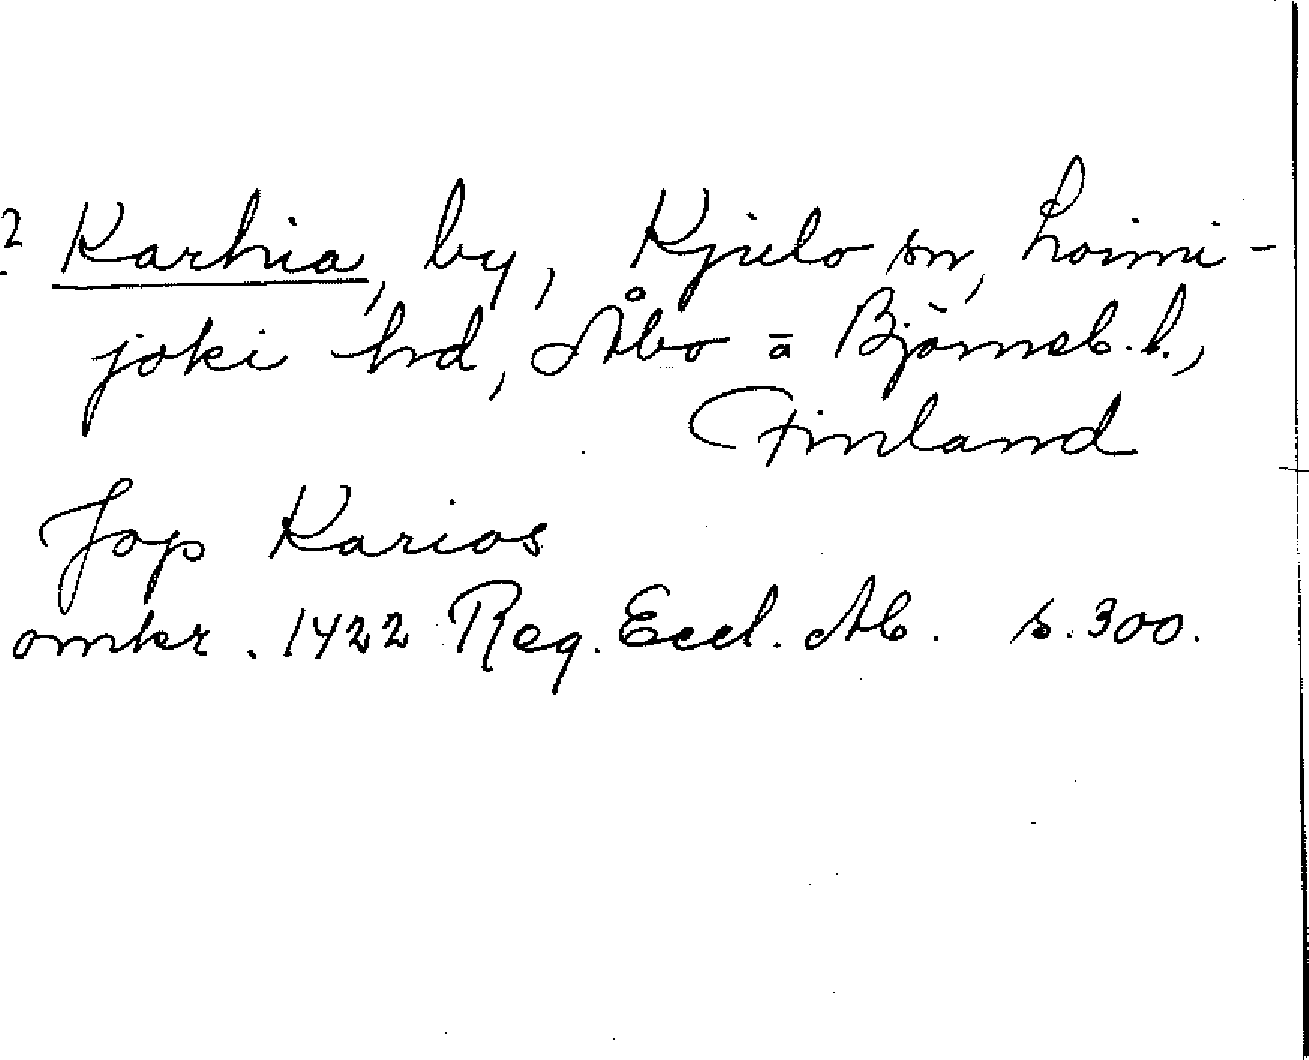 ? Karhia, by, Kjulo sn, Loimi-
joki hd, Åbo ā Björneb. l.,
Finland
Jop Karios
omkr. 1422 Reg. Eccl. Ab. s. 300.